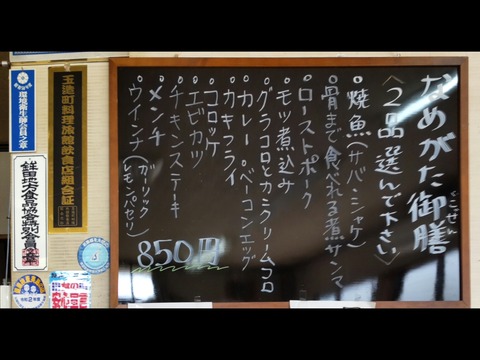 なめがた御膳
ごぜん
〈2品 選んで下さい〉
焼魚(サバ・シャケ)
骨まで食べれる煮サンマ
ローストポーク
モツ煮込み
グラコロとカニクリームコロ
カレー・ベーコンエッグ
カキフライ
コロッケ
エビカツ
チキンステーキ
メンチ
ウインナ(ガーリック レモンパセリ)
850円
環境衛生師会員之章
玉造町料理旅館飲食店組合証
鉾田地方食品協会特別会員之章
令和2年度